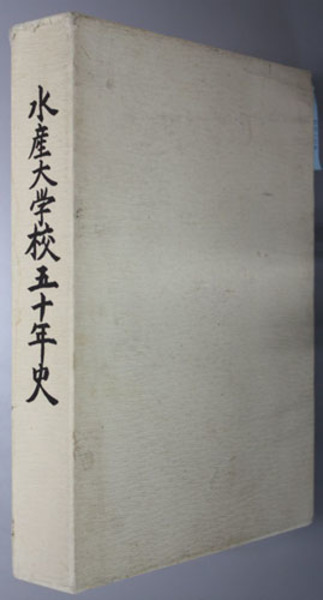 水産大学校五十年史